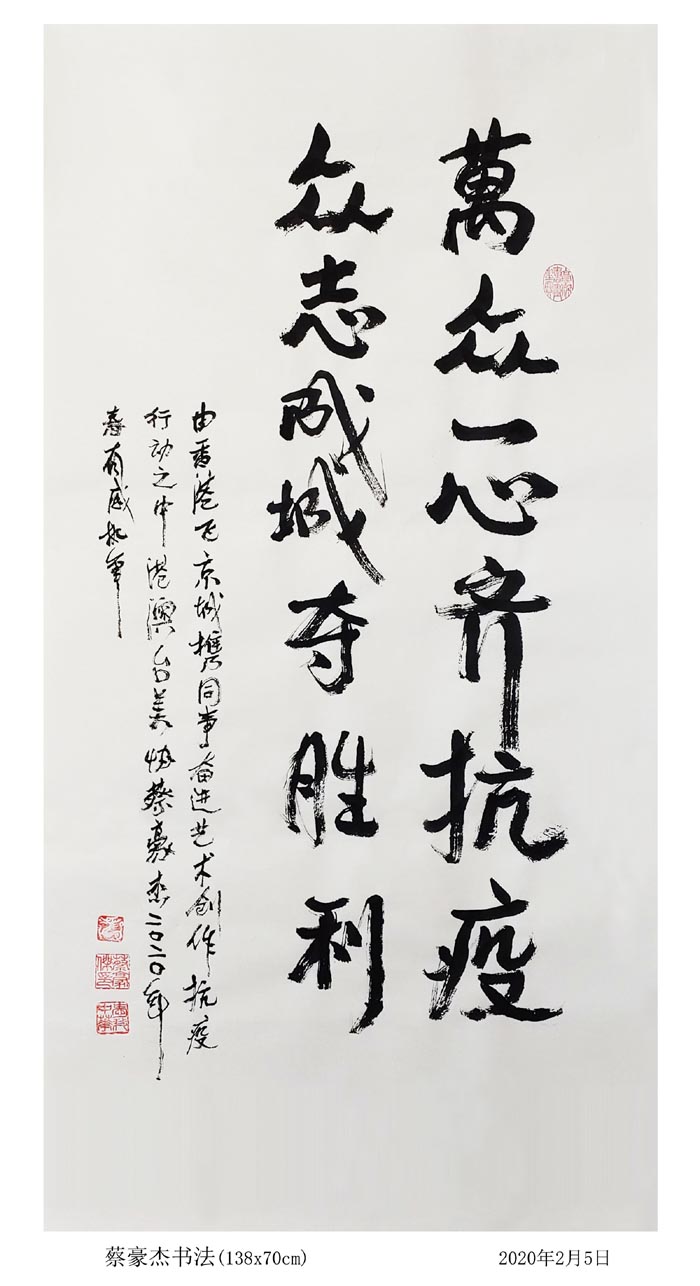 萬众一心齐抗疫
众志成城夺胜利
由香港飞京城携同事奋进艺术创作抗疫
行动之中港澳台美协蔡豪杰二〇二〇年
春有感於笔
蔡豪杰书法(138x70cm)
2020年2月5日